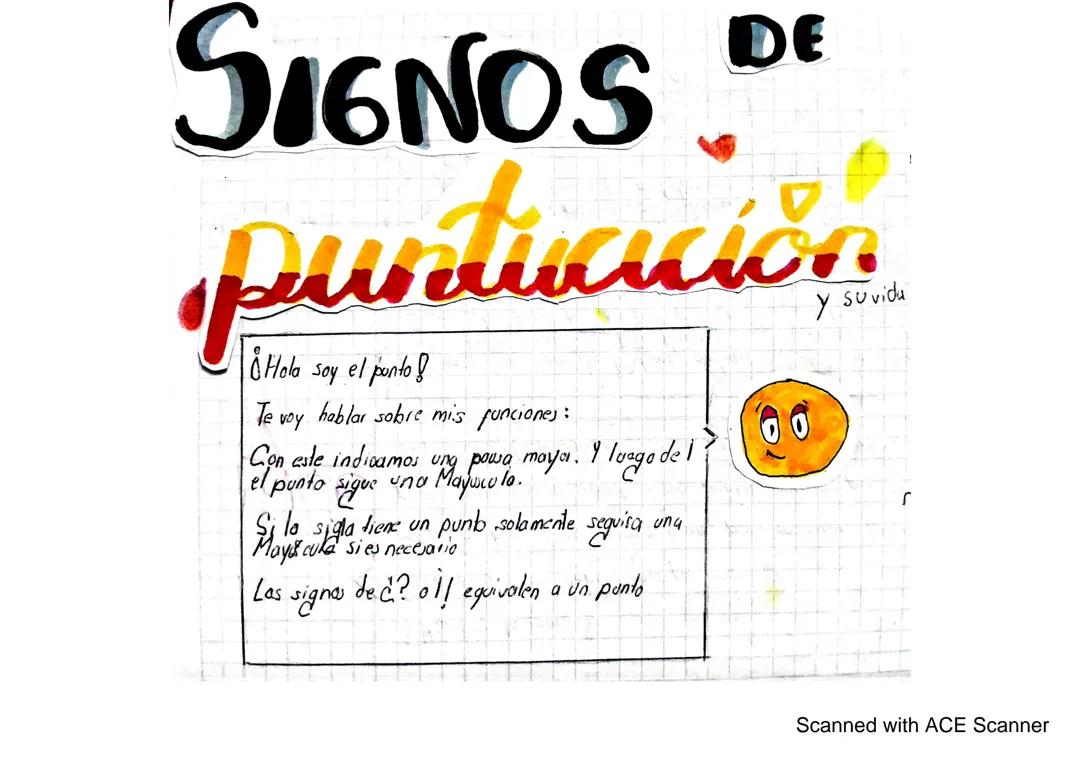 SIGNOS DE
puntuación
y su vida
¡Hola soy el punto!
Te voy hablar sobre mis funciones:
Con este indicamos una pausa mayor. Y luego del
el punto sigue una Mayuscula.
Si la sigla tiene un punto solamente seguira una
Mayúscula si es necesario
Los signos de ¿? o ¡! equivalen a un punto
Scanned with ACE Scanner